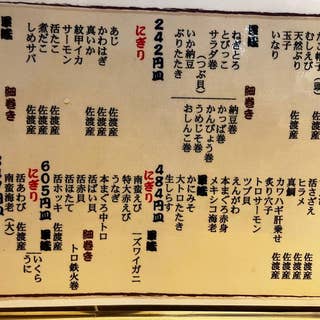 むしえび
天然ぶり
玉子
いなり
細巻き
納豆巻
かっぱ巻
かんぴょう巻
うめじそ巻
おしんこ巻
軍艦
ねぎとろ
とびっこ
サラダ巻
いか納豆
ぶりたたき
242円皿
にぎり
あじ 佐渡産
かわはぎ 佐渡産
真いか 佐渡産
紋甲イカ
サーモン
活たこ 佐渡産
煮だこ 佐渡産
しめサバ
ヒラメ 佐渡産
活さざえ 佐渡産
真鯛
カワハギ肝乗せ
トロサーモン
炙り穴子
ツブ貝
えんがわ
本まぐろ赤身
メキシコ海老
軍艦
かにみそ
トロたたき
生しらす
484円皿
にぎり
南蛮えび 佐渡産
特大赤えび
うなぎ
本まぐろ中トロ
活ばい貝 佐渡産
活赤貝
活ほたて
活ホッキ
ズワイガニ
細巻き
トロ鉄火巻
軍艦
いくら
うに
605円皿
にぎり
活あわび 佐渡産
南蛮海老(大)